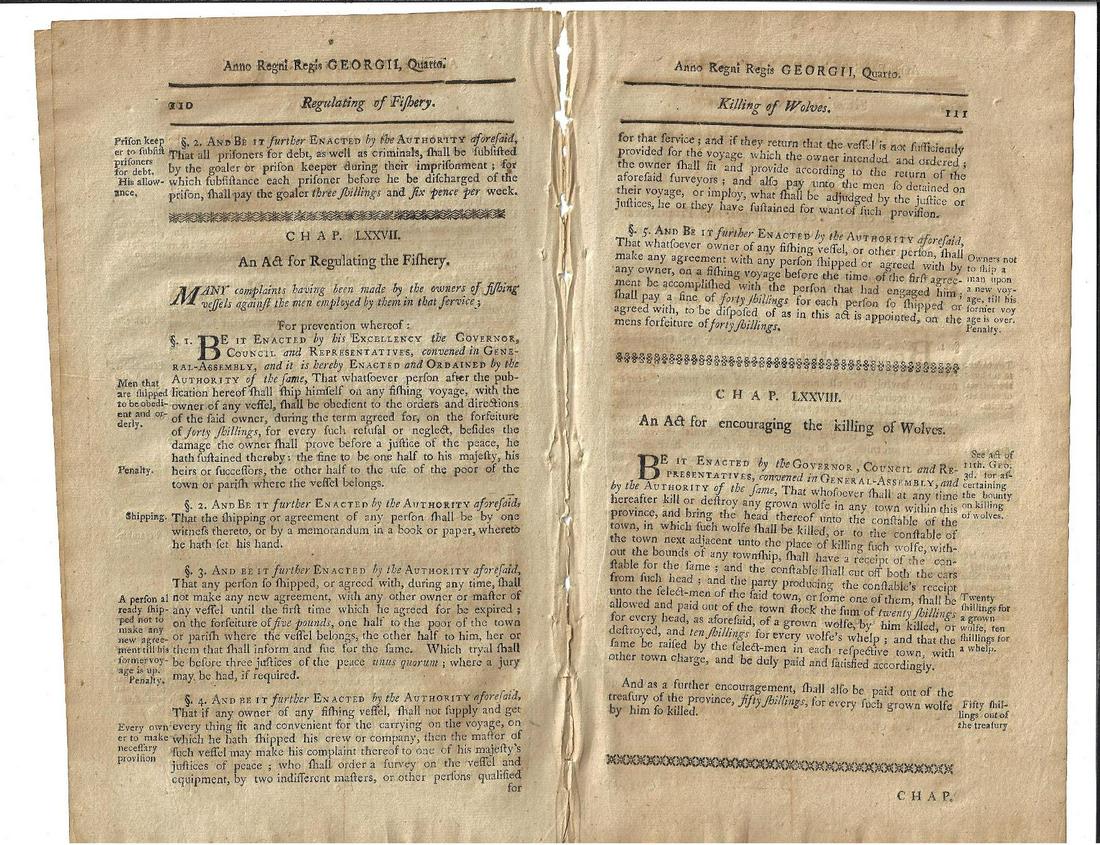 Anno Regni Regis GEORGII, Quarto.
110 Regulating of Fiſhery.
Priſon keep
er to ſubſiſt
priſoners
for debt.
His allow-
ance.
§. 2. AND BE IT further ENACTED by the AUTHORITY aforeſaid,
That all priſoners for debt, as well as criminals, ſhall be ſubſiſted
by the goaler or priſon keeper during their impriſonment; for
which ſubſiſtance each priſoner before he be diſcharged of the
priſon, ſhall pay the goaler three ſhillings and ſix pence per week.
CHAP. LXXVII.
An Act for Regulating the Fiſhery.
MANY complaints having been made by the owners of fiſhing
veſſels againſt the men employed by them in that ſervice;
For prevention whereof:
§. 1. BE IT ENACTED by his EXCELLENCY the GOVERNOR,
COUNCIL and REPRESENTATIVES, convened in GENE-
RAL-ASSEMBLY, and it is hereby ENACTED and ORDAINED by the
AUTHORITY of the ſame, That whatſoever perſon after the pub-
lication hereof ſhall ſhip himſelf on any fiſhing voyage, with the
owner of any veſſel, ſhall be obedient to the orders and directions
of the ſaid owner, during the term agreed for, on the forfeiture
of forty ſhillings, for every ſuch refuſal or neglect, beſides the
damage the owner ſhall prove before a juſtice of the peace, he
hath ſuſtained thereby: the fine to be one half to his majeſty, his
heirs or ſucceſſors, the other half to the uſe of the poor of the
town or pariſh where the veſſel belongs.
Men that
are ſhipped
to be obedi-
ent and or-
derly.
Penalty.
§. 2. AND BE IT further ENACTED by the AUTHORITY aforeſaid,
That the ſhipping or agreement of any perſon ſhall be by one
witneſs thereto, or by a memorandum in a book or paper, whereto
he hath ſet his hand.
Shipping.
§. 3. AND BE IT further ENACTED by the AUTHORITY aforeſaid,
That any perſon ſo ſhipped, or agreed with, during any time, ſhall
not make any new agreement, with any other owner or maſter of
any veſſel until the firſt time which he agreed for be expired;
on the forfeiture of five pounds, one half to the poor of the town
or pariſh where the veſſel belongs, the other half to him, her or
them that ſhall inform and ſue for the ſame. Which tryal ſhall
be before three juſtices of the peace unus quorum; where a jury
may be had, if required.
A perſon al
ready ſhip-
ped not to
make any
new agree-
ment till his
former voy-
age is up.
Penalty.
§. 4. AND BE IT further ENACTED by the AUTHORITY aforeſaid,
That if any owner of any fiſhing veſſel, ſhall not ſupply and get
every thing fit and convenient for the carrying on the voyage, on
which he hath ſhipped his crew or company, then the maſter of
ſuch veſſel may make his complaint thereof to one of his majeſty's
juſtices of peace; who ſhall order a ſurvey on the veſſel and
equipment, by two indifferent maſters, or other perſons qualified
for
Every own
er to make
neceſſary
proviſion
Anno Regni Regis GEORGII, Quarto.
Killing of Wolves. 111
for that ſervice; and if they return that the veſſel is not ſufficiently
provided for the voyage which the owner intended and ordered;
the owner ſhall fit and provide according to the return of the
aforeſaid ſurveyors; and alſo pay unto the men ſo detained on
their voyage, or imploy, what ſhall be adjudged by the juſtice or
juſtices, he or they have ſuſtained for want of ſuch proviſion.
§. 5. AND BE IT further ENACTED by the AUTHORITY aforeſaid,
That whatſoever owner of any fiſhing veſſel, or other perſon, ſhall
make any agreement with any perſon ſhipped or agreed with by
any owner, on a fiſhing voyage before the time of the firſt agree-
ment be accompliſhed with the perſon that had engaged him;
ſhall pay a fine of forty ſhillings for each perſon ſo ſhipped or
agreed with, to be diſpoſed of as in this act is appointed, on the
mens forfeiture of forty ſhillings.
Owners not
to ſhip a
man upon
a new voy-
age, till his
former voy
age is over.
Penalty.
CHAP. LXXVIII.
An Act for encouraging the killing of Wolves.
BE IT ENACTED by the GOVERNOR, COUNCIL and RE-
PRESENTATIVES, convened in GENERAL-ASSEMBLY, and
by the AUTHORITY of the ſame, That whoſoever ſhall at any time
hereafter kill or deſtroy any grown wolfe in any town within this
province, and bring the head thereof unto the conſtable of the
town, in which ſuch wolfe ſhall be killed, or to the conſtable of
the town next adjacent unto the place of killing ſuch wolfe, with-
out the bounds of any townſhip, ſhall have a receipt of the con-
ſtable for the ſame; and the conſtable ſhall cut off both the ears
from ſuch head; and the party producing the conſtable's receipt
unto the ſelect-men of the ſaid town, or ſome one of them, ſhall be
allowed and paid out of the town ſtock the ſum of twenty ſhillings
for every head, as aforeſaid, of a grown wolfe, by him killed, or
deſtroyed, and ten ſhillings for every wolfe's whelp; and that the
ſame be raiſed by the ſelect-men in each reſpective town, with
other town charge, and be duly paid and ſatisfied accordingly.
See act of
11th. Geo.
3d. for aſ-
certaining
the bounty
on killing
of wolves.
Twenty
ſhillings for
a grown
wolfe, ten
ſhillings for
a whelp.
And as a further encouragement, ſhall alſo be paid out of the
treaſury of the province, fifty ſhillings, for every ſuch grown wolfe
by him ſo killed.
Fifty ſhil-
lings out of
the treaſury
CHAP.